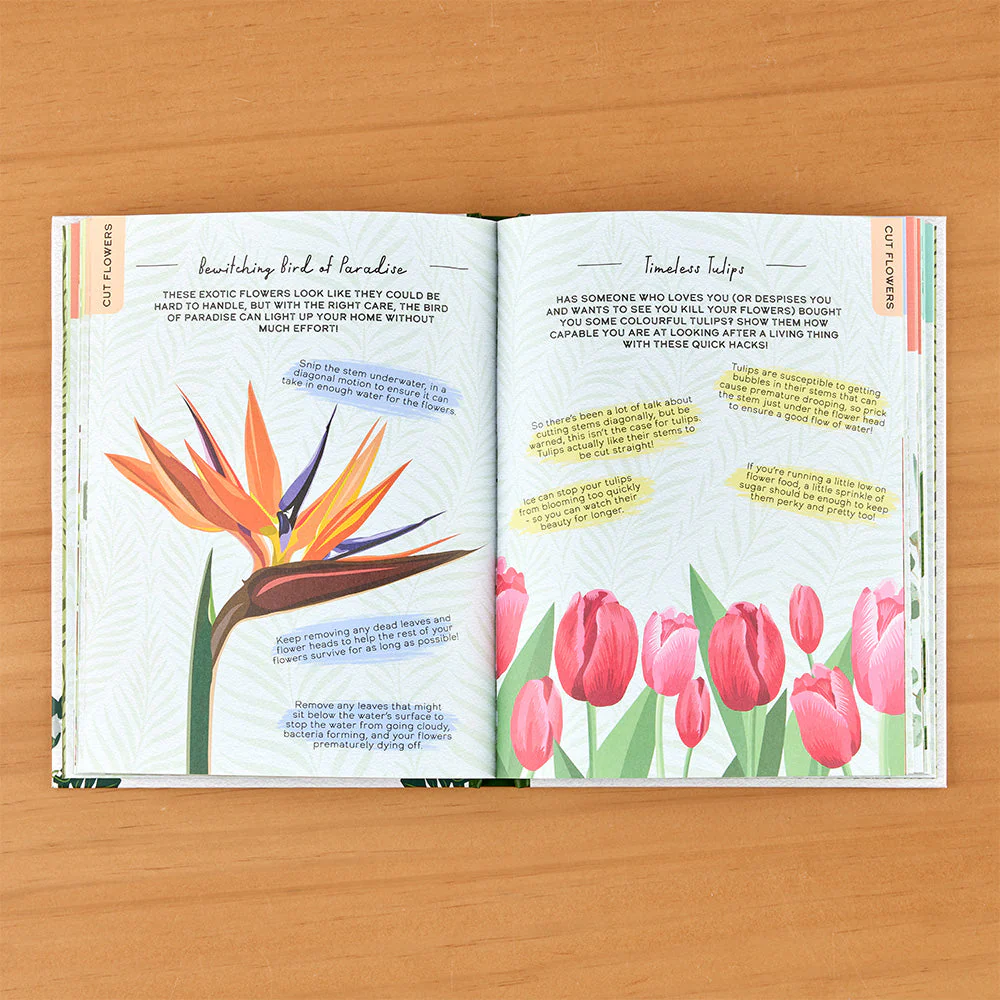 CUT FLOWERS
Bewitching Bird of Paradise
THESE EXOTIC FLOWERS LOOK LIKE THEY COULD BE
HARD TO HANDLE, BUT WITH THE RIGHT CARE, THE BIRD
OF PARADISE CAN LIGHT UP YOUR HOME WITHOUT
MUCH EFFORT!
Snip the stem underwater, in a
diagonal motion to ensure it can
take in enough water for the flowers.
Keep removing any dead leaves and
flower heads to help the rest of your
flowers survive for as long as possible!
Remove any leaves that might
sit below the water's surface to
stop the water from going cloudy,
bacteria forming, and your flowers
prematurely dying off.
CUT FLOWERS
Timeless Tulips
HAS SOMEONE WHO LOVES YOU (OR DESPISES YOU
AND WANTS TO SEE YOU KILL YOUR FLOWERS) BOUGHT
YOU SOME COLOURFUL TULIPS? SHOW THEM HOW
CAPABLE YOU ARE AT LOOKING AFTER A LIVING THING
WITH THESE QUICK HACKS!
Tulips are susceptible to getting
bubbles in their stems that can
cause premature drooping, so prick
the stem just under the flower head
to ensure a good flow of water!
So there's been a lot of talk about
cutting stems diagonally, but be
warned, this isn't the case for tulips.
Tulips actually like their stems to
be cut straight!
If you're running a little low on
flower food, a little sprinkle of
sugar should be enough to keep
them perky and pretty too!
Ice can stop your tulips
from blooming too quickly
- so you can watch their
beauty for longer.